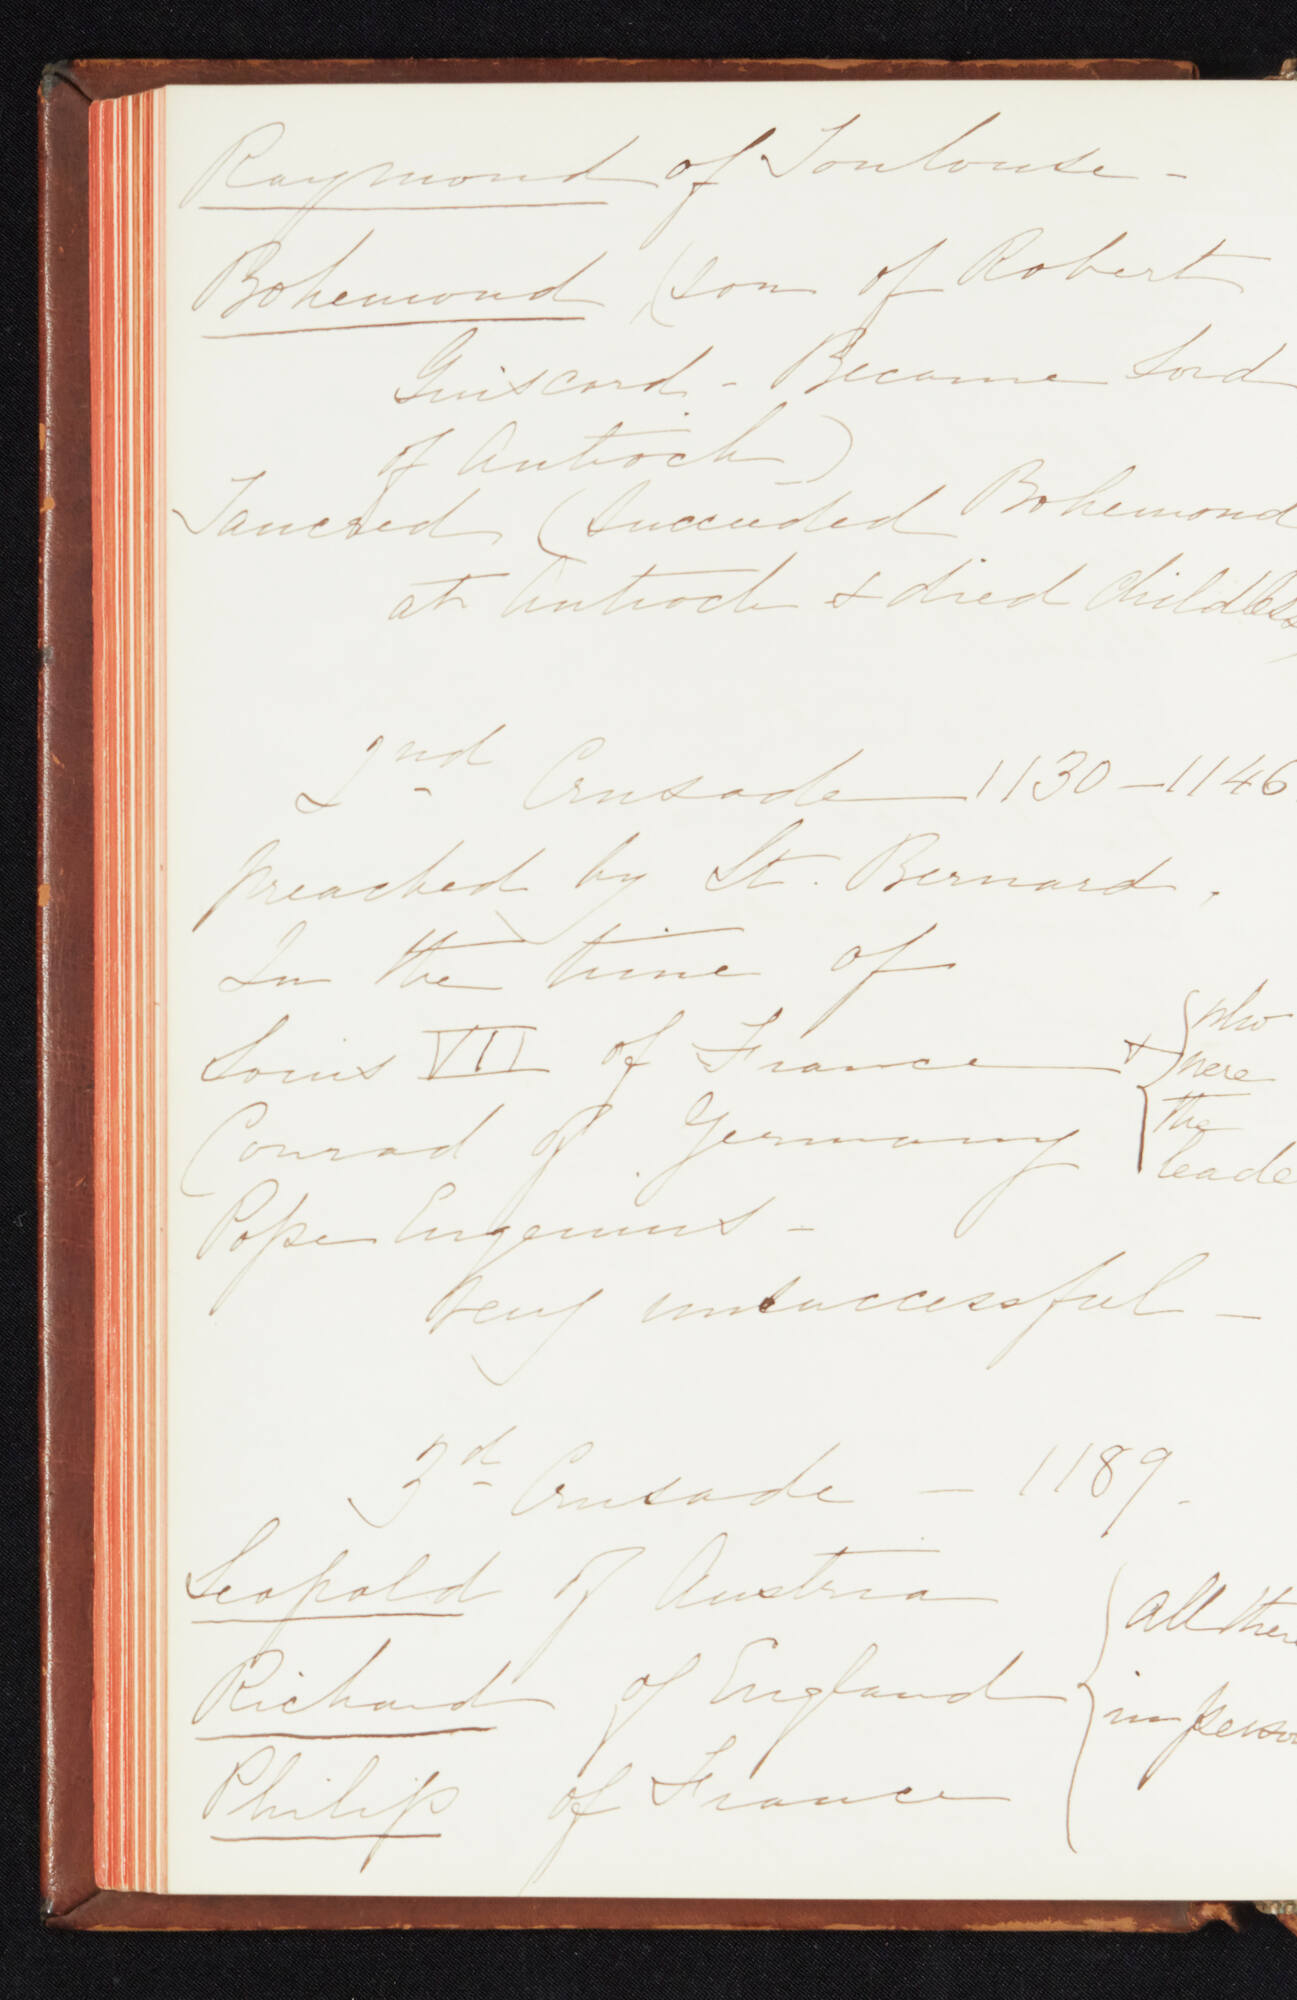 Raymond of Toulouse -
Bohemond (son of Robert
Guiscard - Became Lord
of Antioch)
Tancred (succeeded Bohemond
at Antioch & died childless)
2nd Crusade 1130 - 1146
preached by St. Bernard.
In the time of
Louis VII of France & { who
were
Conrad of Germany { the
leade
Pope Eugenius -
Very unsuccessful -
3d Crusade - 1189.
Leopold of Austria
Richard of England
Philip of France
{ all there
in perso